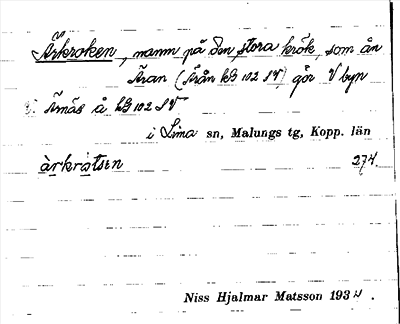 Ärkroken, namn på den stora krök, som ån
Äran (Årån kB 102 SV) gör V byn
Ärnäs å kB 102 SV
i Lima sn, Malungs tg, Kopp. län
àrkrątsɛn 27/7.
Niss Hjalmar Matsson 1934.